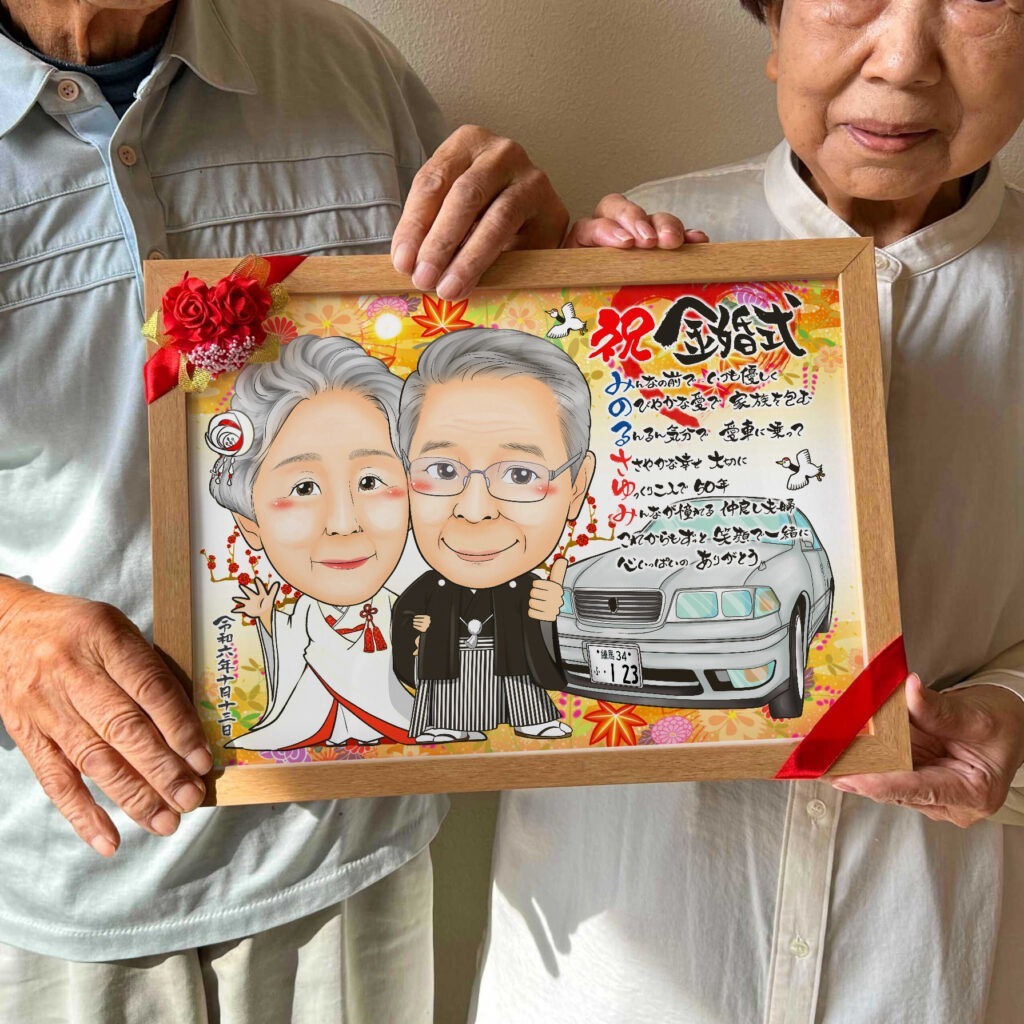 祝 金婚式
みんなの前で いつも優しく
のびやかな愛で 家族を包む
るんるん気分で 愛車に乗って
ささやかな幸せ 大切に
ゆっくりこえて 50年
みんなが憧れる 仲良し夫婦
これからもずっと 笑顔で一緒に
心いっぱいの ありがとう
練馬 34
ふ・・1 23
令和六年十月十三日